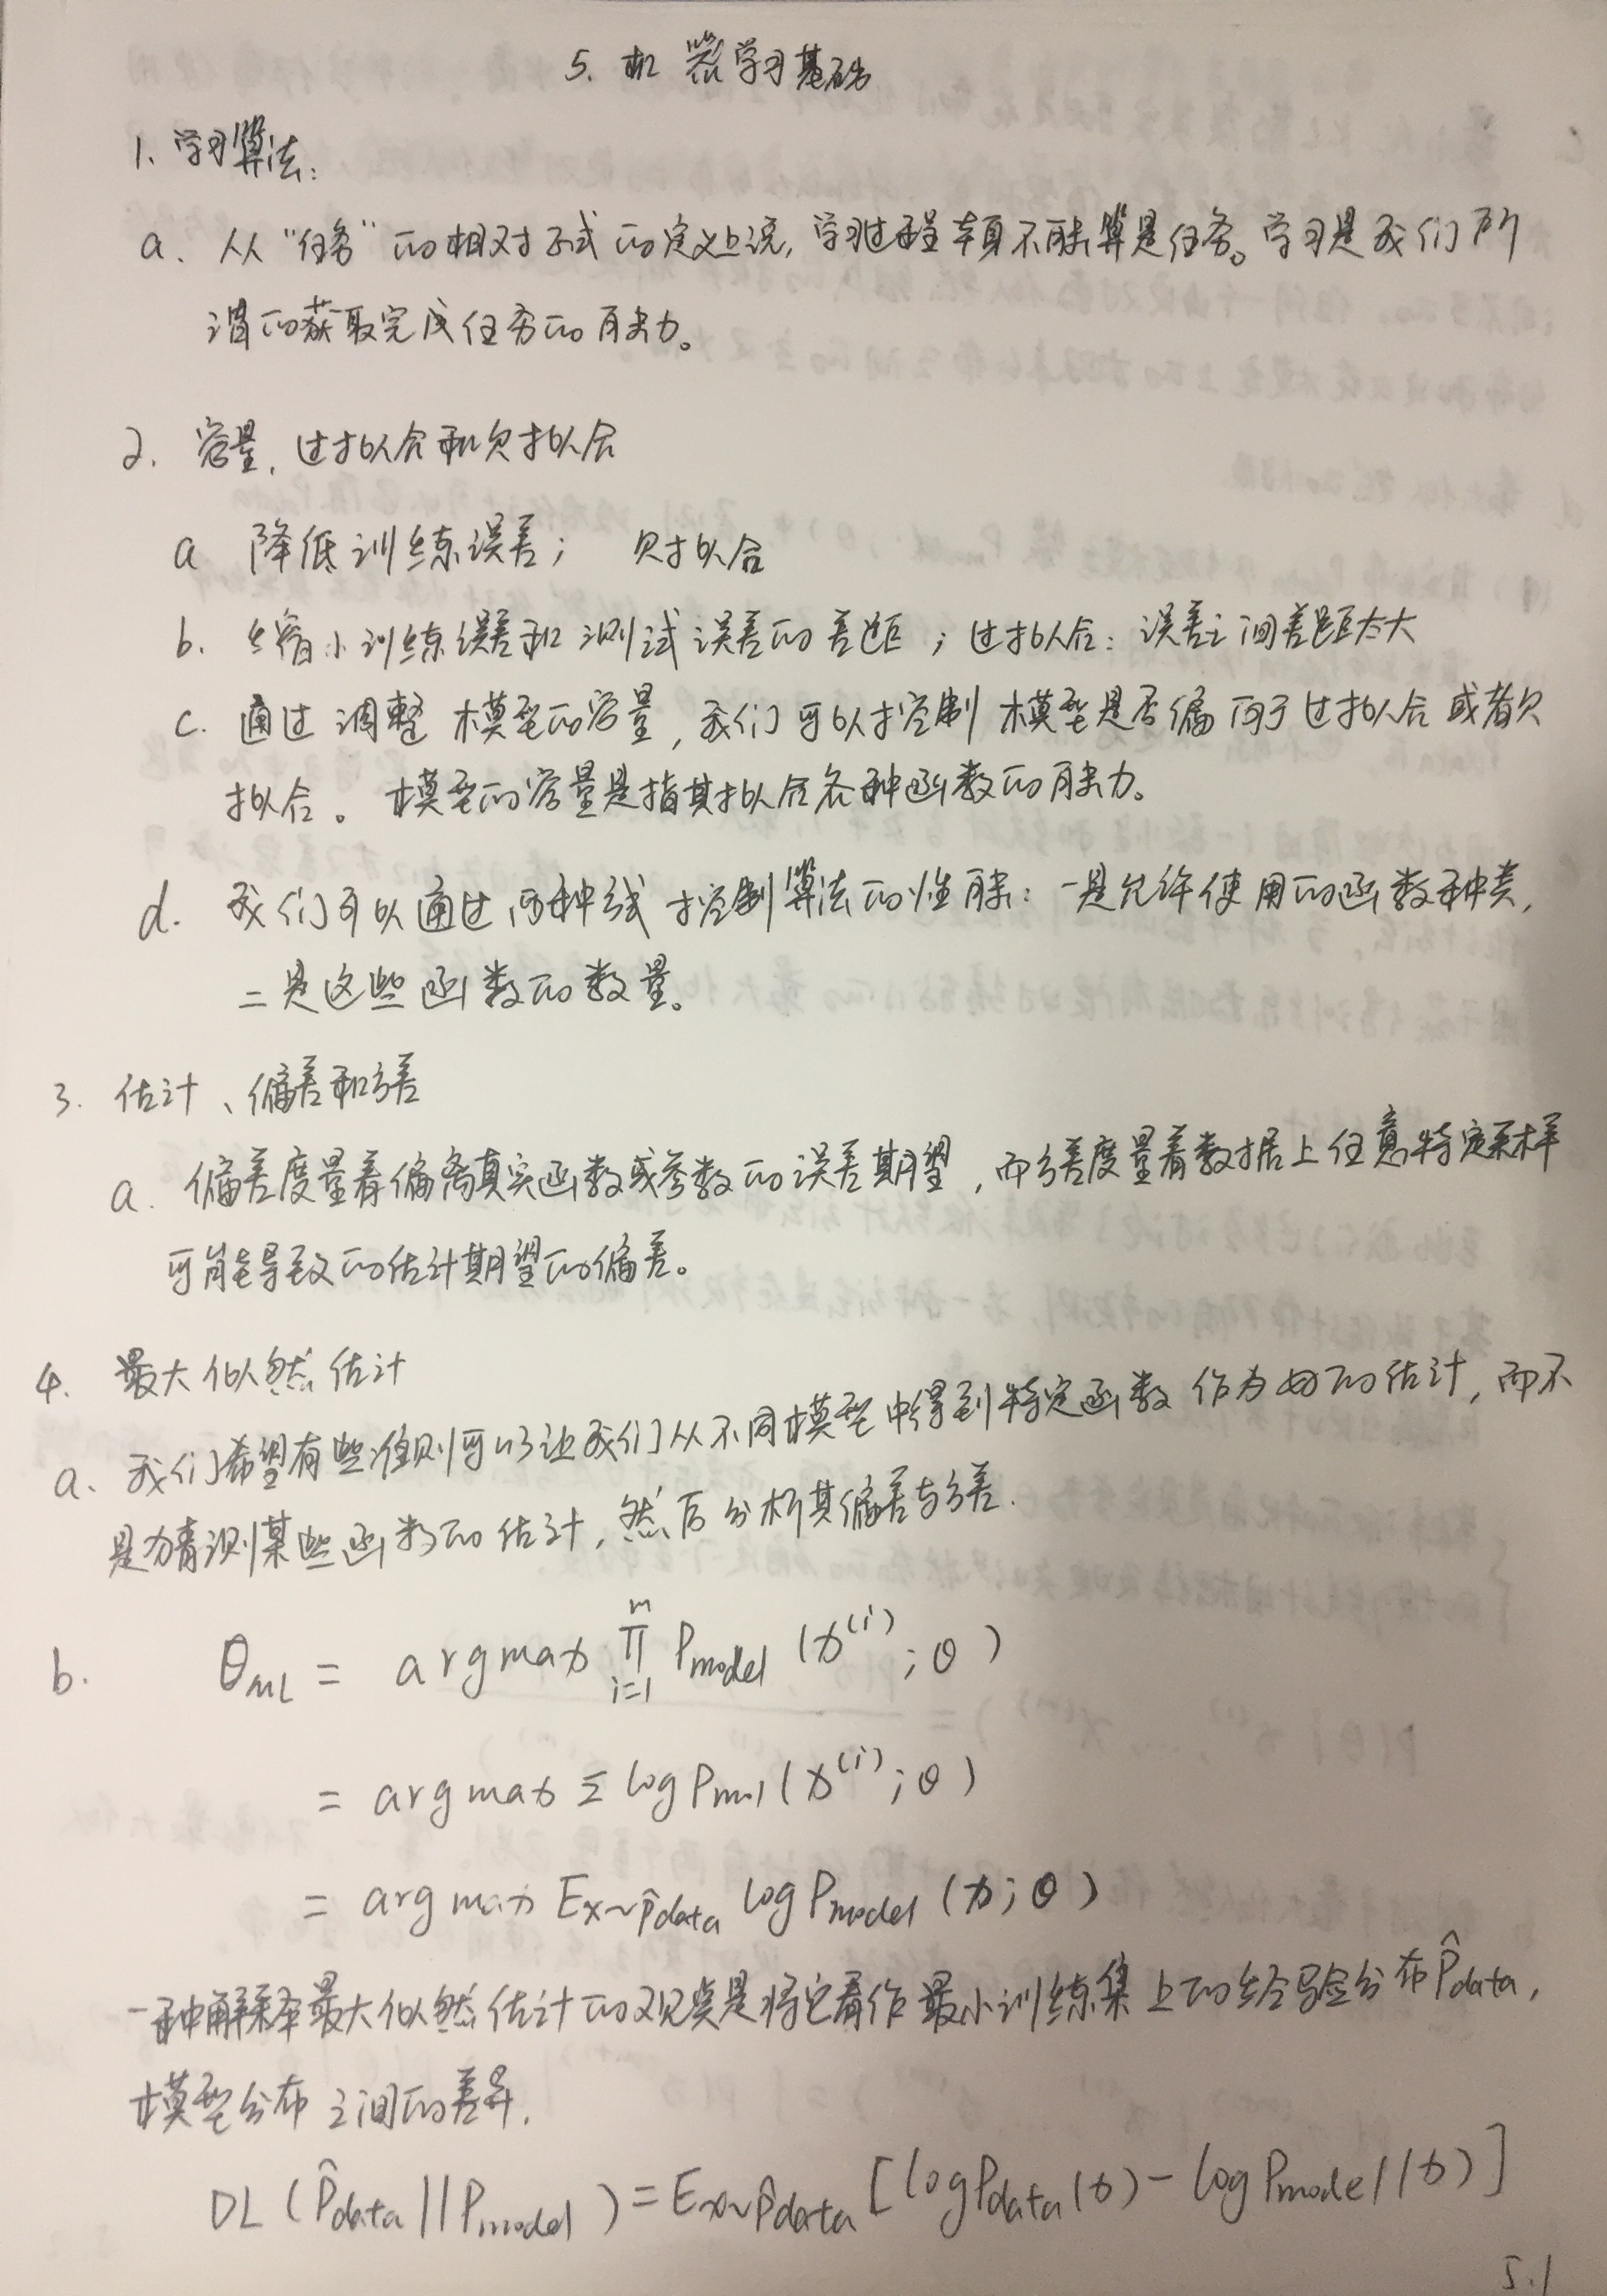 5. 机器学习基础
1. 学习算法:
a. 从“任务”的相对正式的定义上说, 学习过程本身不能算是任务。学习是我们所
谓的获取完成任务的能力。
2. 容量, 过拟合和欠拟合
a 降低训练误差; 欠拟合
b. 缩小训练误差和测试误差的差距; 过拟合: 误差之间差距太大
c. 通过调整模型的容量, 我们可以控制模型是否偏向于过拟合或者欠
拟合。模型的容量是指其拟合各种函数的能力。
d. 我们可以通过两种方式控制算法的性能: 一是允许使用的函数种类,
二是这些函数的数量。
3. 估计、偏差和方差
a. 偏差度量着偏离真实函数或参数的误差期望, 而方差度量着数据上任意特定采样
可能导致的估计期望的偏差。
4. 最大似然估计
a. 我们希望有些准则可以让我们从不同模型中得到特定函数作为好的估计, 而不
是猜测某些函数的估计, 然后分析其偏差与方差.
b. θ_ML = argmax ∏_{i=1}^{m} P_model (x^(i); θ)
= argmax Σ log P (x^(i); θ)
= argmax E_{x~p̂data} log P_model (x; θ)
一种解释最大似然估计的观点是将它看作最小训练集上的经验分布 P̂data,
模型分布之间的差异.
DL (P̂data || P_model) = E_{x~p̂data} [log P_data(x) - log P_model(x)]
5.1